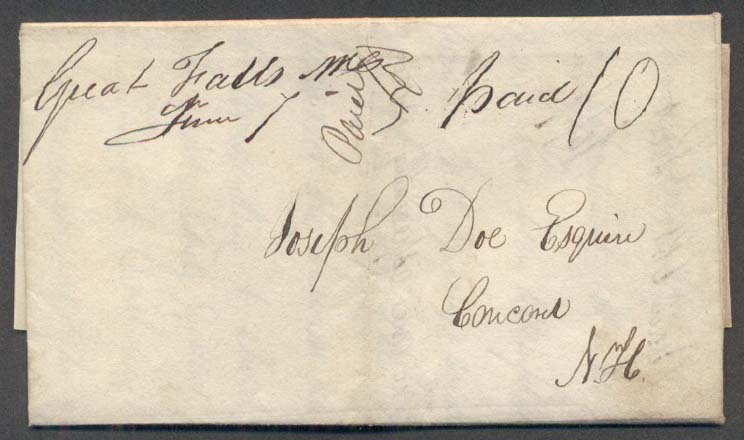 Great Falls Me
Paid
paid 10
June 7
Joseph Doe Esquire
Concord
N.H.